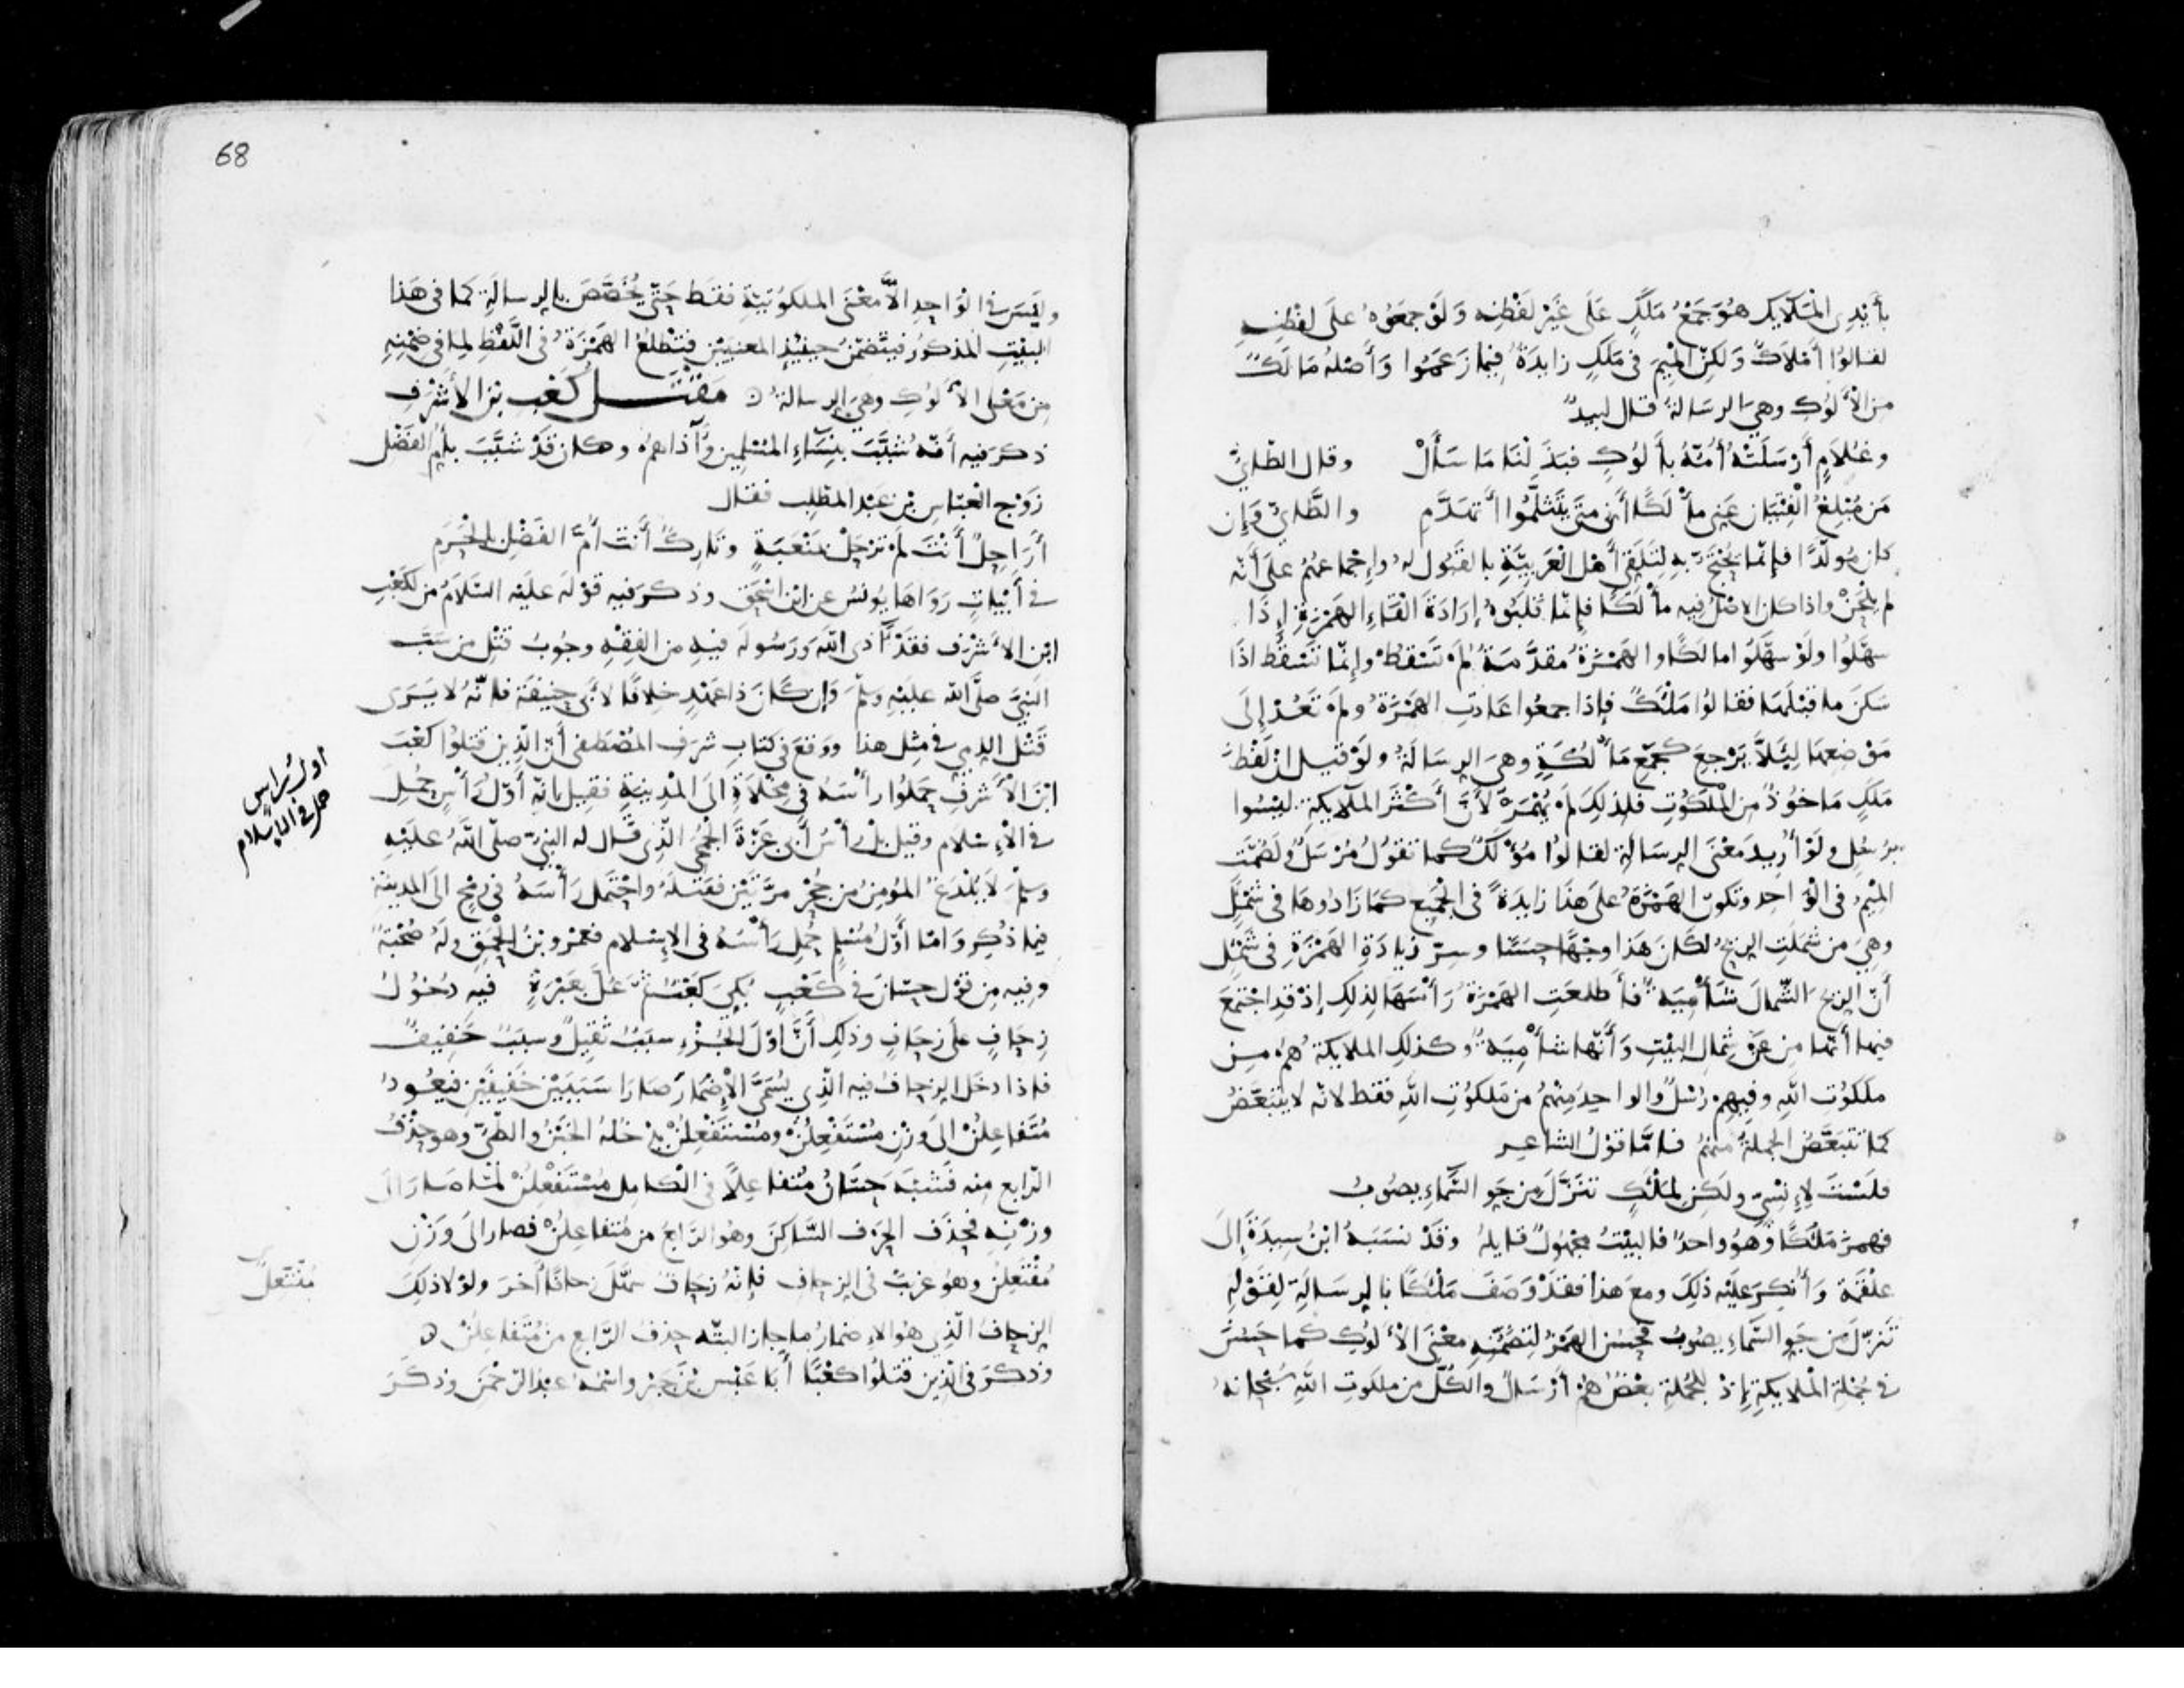 بأَيْدِي الْمَلَايِكِ هُوَ جَمْعُ مَلَكٍ عَلَى غَيْرِ لَفْظِهِ وَلَوْ جَمَعُوهُ عَلَى لَفْظِهِ
لقَالُوا أَمْلَاكٌ وَلَكِنَّ الْمِيمَ فِي مَلَكٍ زايدَةٌ فيمَا زَعَمُوا وَأَصْلُهُ مَالَكٌ
من الأَلُوكِ وهي الرسَالةُ قال لبيدٌ
وغُلَامٍ أَرْسَلَتْهُ أُمُّهُ بأَلُوكٍ فبَذَلْنَا مَا سَأَلْ وقال الطائيُّ
مَن مُبْلِغُ الْفِتْيَانِ عَنِي مأْلَكًا أَنِّي متَى يَتَثَلَّمُوا أَتهدَّمِ والطَّائيُّ وَإِن
كان مُوَلَّدًا فإنّما يُحْتَجُّ بِهِ لِتَلَقِّي أَهْلِ الْعَرَبِيَّةِ بالقَبُول لهُ وإِجْماعهمْ علَى أَنّه
لم يلْحَنْ واذا كان الاصْلُ فيه مأْلَكًا فإنّما قَلَبُوهُ إرَادَةَ الْقَاءِ الهَمْزةِ إذَا
سهّلُوا ولَوْ سهّلَوا مالَكًا والهَمْزَةُ مقدَّمَةٌ لَمْ تَسْقُطْ وإِنّما تَسْقُطُ اذَا
سَكَنَ ما قبْلَهَا فقالُوا مَلْئَكٌ فإذا جمعُوا عَادَتِ الهَمْزَةُ ولَمْ تَعُدْ إِلَى
مَوْضِعهَا لِئَلَّا يَرْجِعَ كجَمْعِ مَأْلُكَةٍ وهيَ الرِسَالَةُ ولَوْ قيل إنّ لَفْظَ
مَلَكٍ مَاخُوذٌ مِن الْمَلَكُوتِ فلذلِكَ لَمْ يُهْمَزْ لأَنَّ أَكْثَرَ الْمَلَايكةِ ليْسُوا
برُسُلٍ ولَوْ أُرِيدَ مَعْنَى الرِسَالةِ لقالُوا مُؤْلَكٌ كما تقولُ مُرْسَلٌ ولَضُمَّت
المِيمُ في الْوَاحدِ وتكونُ الهَمْزَةُ علَى هَذَا زايدَةً في الْجَمِيع كمَا زَادُوهَا في شَمْئَلٍ
وهيَ من شَمَلَتِ الريحُ لكَانَ هَذَا وجْهًا حسَنًا وسِرّ زيادَةِ الهَمْزَةِ في شَمْئَلٍ
أَنّ الريحَ الشّمالَ شَأْمِيَةٌ فأَطلعَتِ الهَمْزَةُ رَأسَهَا لذلِك إذْ قدِ اجْتَمعَ
فيها أنّها من عَنْ شِمالِ البَيْتِ وَأَنّها شأْمِيَةٌ وكذلِك الملايكَةُ هم مِن
ملَكُوتِ اللهِ وفيهم رُسُلٌ والواحِدُ مِنْهُمْ من مَلكُوتِ اللهِ فقط لانه لا يَتَبَعَّضُ
كما تَتبَعَّضُ الجملةُ منهم فامّا قَوْلُ الشاعِرِ
فلَسْتَ لإِنْسِيٍّ ولَكِن لِمَلْئَكٍ تَنَزَّلَ مِن جَوِ السَّمَاءِ يصُوبُ
فهمزَ مَلْئكًا وهُوَ واحدٌ فالبَيْتُ مجْهُولٌ قايلهُ وقَدْ نسَبَهُ ابْنُ سِيدَةَ إلَى
علْقَمة وَأُنْكِرَ علَيْه ذلِكَ ومعَ هذا فقَدْ وَصَفَ مَلْئكًا بالرِسَالَةِ لقَوْلِهِ
تَنَزّلَ من جَوِ السَّماءِ يصُوبُ فحَسُن الهَمْزُ لتَضمُّنِهِ معْنَى الأَلُوكِ كما حَسُنَ
في جُمْلةِ الْمَلايكةِ إِذْ للجُملةِ بعْضٌ هُمْ أرْسَالٌ والكُلُّ من ملكوتِ اللهِ سُبْحانهُ
68
وليَسَ في الْوَاحِدِ الاَّ معْنَى الملكُوتيّةِ فقطْ حتَّى يُخَصَّصَ بالرِسالَةِ كما في هَذا
البيْتِ المذكُورِ فيتَضَمَّنُ حِينئِذٍ المعنيَيْنِ فتطْلعُ الهَمْزَةُ في اللَّفْظِ لمَا في ضمْنِهِ
من مَعْنَى الأَلُوكِ وهي الرسالةُ مَقْتَلُ كَعْبِ بْنِ الأَشْرَفِ
ذكرَ فيه أَنّه شَبَّبَ بنِسَاءِ المُسْلِمِين وآذاهم وكانَ قَدْ شبَّبَ بأُمِّ الفَضْل
زَوْجِ الْعبّاسِ بْنِ عَبْدِ المطَّلِبِ فقال
أَرَاحِلٌ أَنْتَ لَمْ تَرْحَلْ بمَنْعَبَةٍ وتَارِكٌ أَنْتَ أُمَّ الفَضْلِ بالحَرَمِ
في أَبْيَاتٍ رَوَاهَا يُونُسُ عن ابْن اسْحَقَ وذكرَ فيه قوْلَه علَيْه السَّلامُ مَن لكَعْبِ
ابْنِ الأَشْرَفِ فقَدْ آذى اللهَ وَرَسُولَهُ فيهِ من الفِقْهِ وجُوبُ قَتْلِ من سَبَّ
النبيَّ صلَّى الله علَيْهِ وسلّمَ وَإن كَانَ ذا عَهْدٍ خلافًا لأَبي حنيفَة فإنّهُ لا يَرَى
قَتْلَ الذِمي في مِثْلِ هذا ووَقعَ في كتابِ شرَفِ المُصْطَفَى أَنّ الَّذِين قتلُوا كعْبَ
ابْنَ الأَشْرفِ حَمَلُوا رأْسَهُ في مِخْلَاةٍ الى المَدِينَةِ فقيل إنّه أَوّلُ رَأْسٍ حُمِلَ
في الإِسْلام وقيل بلْ رأْسُ أَبي عَزّةَ الجُمَحيِ الَّذِي قَال له النبيُّ صلَّى اللهُ علَيْهِ
وسلّمَ لَا يُلْدَغُ المُؤمنُ من جُحْرٍ مَرّتَيْنِ فقتلَهُ واحْتملَ رَأْسَهُ في رُمْحٍ الَى المدينَةِ
فيما ذُكِرَ وَامّا أَوَّلُ مُسْلِمٍ حُمِلَ رَأْسَهُ في الإِسْلام فعمْرو بْنُ الحَمِقِ ولَهُ صُحْبَةٌ
وفيه مِن قوْلِ حسّانَ في كَعْبٍ بُكِيَ كَعْبٌ ثُمَّ عُلَّ بعَبْرَةٍ فيه دُخُولُ
زِحَافٍ علَى زِحَافٍ وذلِك أَنَّ اوّلَ الجُزْءِ سبَبٌ ثقيلٌ وسبَبٌ خَفِيفٌ
فاذا دخَل الزِحافُ فيه الّذِي يُسَمَّى الإضْمَارَ صَارَا سَبَبَيْنِ خفيفَيْنِ فيَعُودُ
مُتَفاعِلُنْ الَى وَزْنِ مُسْتَفْعِلُنْ ومُسْتَفْعِلُنْ يدْخُلهُ الخَبْنُ والطّيُّ وهو حَذْفُ
الرّابعِ مِنه فَشَبَّهَ حَسّانُ مُتفاعِلًا في الْكامِلِ بمُسْتَفْعِلُنْ لمّا صَارَ الَى
وزْنِهِ فحذَفَ الحرْفَ السَّاكِنَ وهوَ الرَّابعُ مِن مُتفاعِلُنْ فصار الَى وَزْنِ
مُفْتَعِلُنْ وهُوَ غريبٌ في الزِحافِ فإِنّهُ زِحَافٌ سَهَّلَ زِحافًا آخَرَ ولوْلا ذلِكَ
الزِحافُ الّذِي هُوَ الإِضمارُ ما جازَ البتّهَ حذفُ الرّابعِ مِن مُتَفاعِلُنْ
وَذكَرَ في الذِين قَتلُوا كعْبًا أبَا عَبْسِ بْنَ جَبْرٍ واسْمُهُ عبْدُ الرّحْمَنِ وذكَرَ
اول راس
حمل في الاسلام
مُفْتعلن